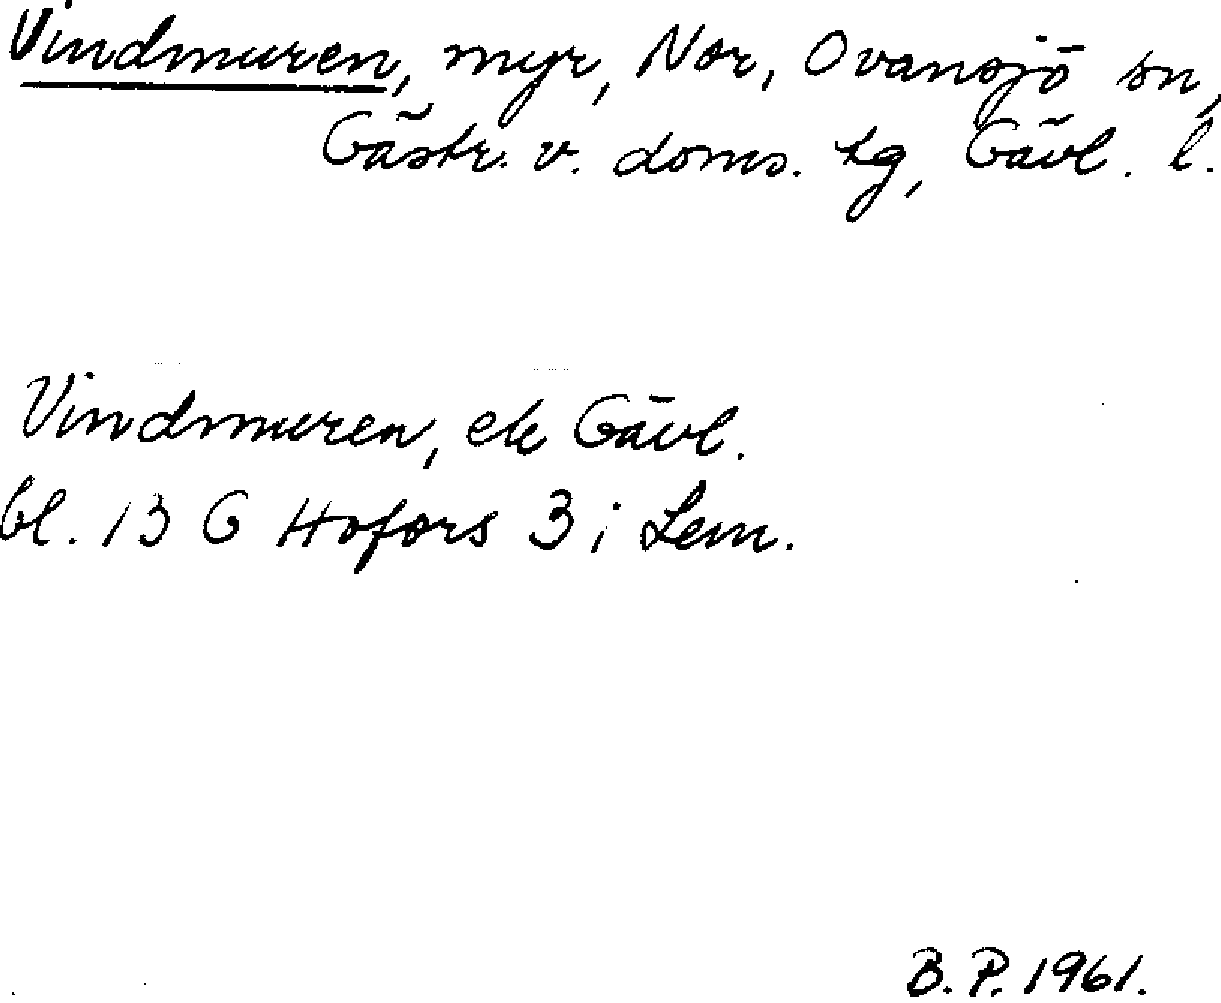 Vindmuren, myr, Nor, Ovansjö sn,
Gästr. v. doms. tg, Gävl. l.
Vindmuren, ek Gävl.
bl. 13 G Hofors 3 i Lem.
B. P. 1961.